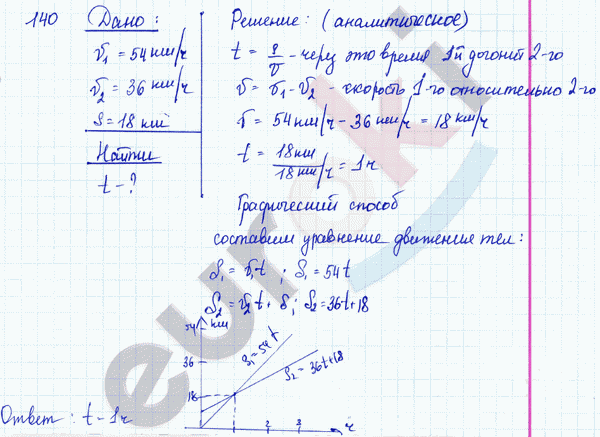 140 Дано:
v₁ = 54 км/ч
v₂ = 36 км/ч
S = 18 км
Найти
t - ?
Решение: (аналитическое)
t = S/v - через это время 1й догонит 2-го
v = v₁ - v₂ - скорость 1-го относительно 2-го
v = 54 км/ч - 36 км/ч = 18 км/ч
t = 18 км / 18 км/ч = 1 ч
Графический способ
составим уравнение движения тел:
S₁ = v₁t ; S₁ = 54t
S₂ = v₂t + S; S₂ = 36t+18
км
54
36
18
S₁ = 54t
S₂ = 36t+18
2 3 ч
Ответ: t - 1ч
euroki